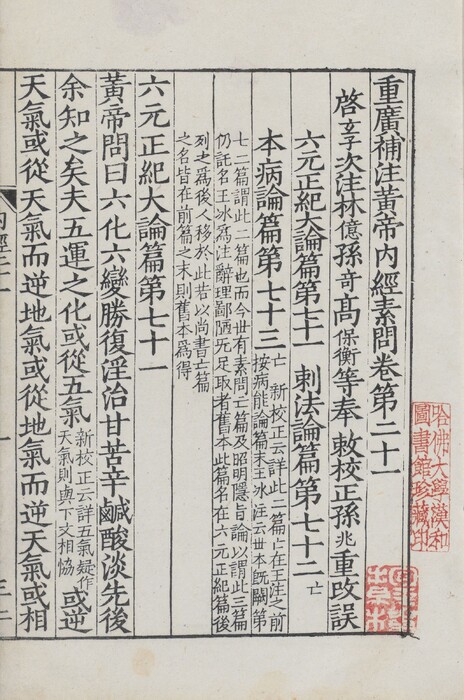 重廣補注黃帝內經素問卷第二十一
啓玄子次注林億孫奇高保衡等奉敕校正孫兆重改誤
六元正紀大論篇第七十一 刺法論篇第七十二亡
本病論篇第七十三亡 新校正云詳此二篇亡在王注之前
按病能論篇末王冰注云世本旣闕第
七二篇謂此二篇也而今世有素問亡篇及昭明隱旨論以謂此三篇
仍託名王冰爲注辭理鄙陋无足取者舊本此篇名在六元正紀篇後
列之爲後人移於此若以尚書亡篇
之名皆在前篇之末則舊本爲得
六元正紀大論篇第七十一
黃帝問曰六化六變勝復淫治甘苦辛鹹酸淡先後
余知之矣夫五運之化或從五氣新校正云詳五氣疑作天氣則與下文相恊或逆
天氣或從天氣而逆地氣或從地氣而逆天氣或相
哈佛大學漢和
圖書館珍藏印